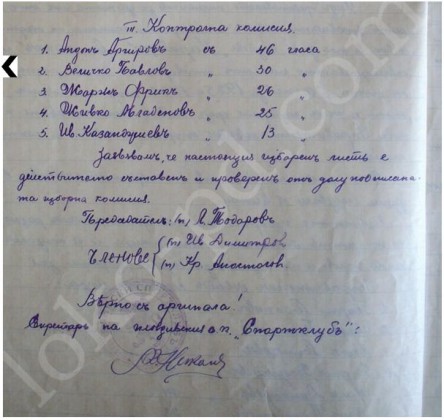 III. Контролна комисия.
1. Андонъ Аргировъ съ 46 гласа
2. Величко Павловъ " 30 "
3. Жоржъ Фрипъ " 26 "
4. Живко Младеновъ " 25 "
5. Ив. Казанджиевъ " 13 "
Заявявамъ, че настоящия изборенъ листъ е
действително съставенъ и провѣренъ отъ долуподписана-
та изборна комисия.
Председатель: (п) Тодоровъ
Членове (п) Ив. Димитров
(п) Кр. Апостолов
Вѣрно съ оригинала!
Секретарь на "Спортклубъ":